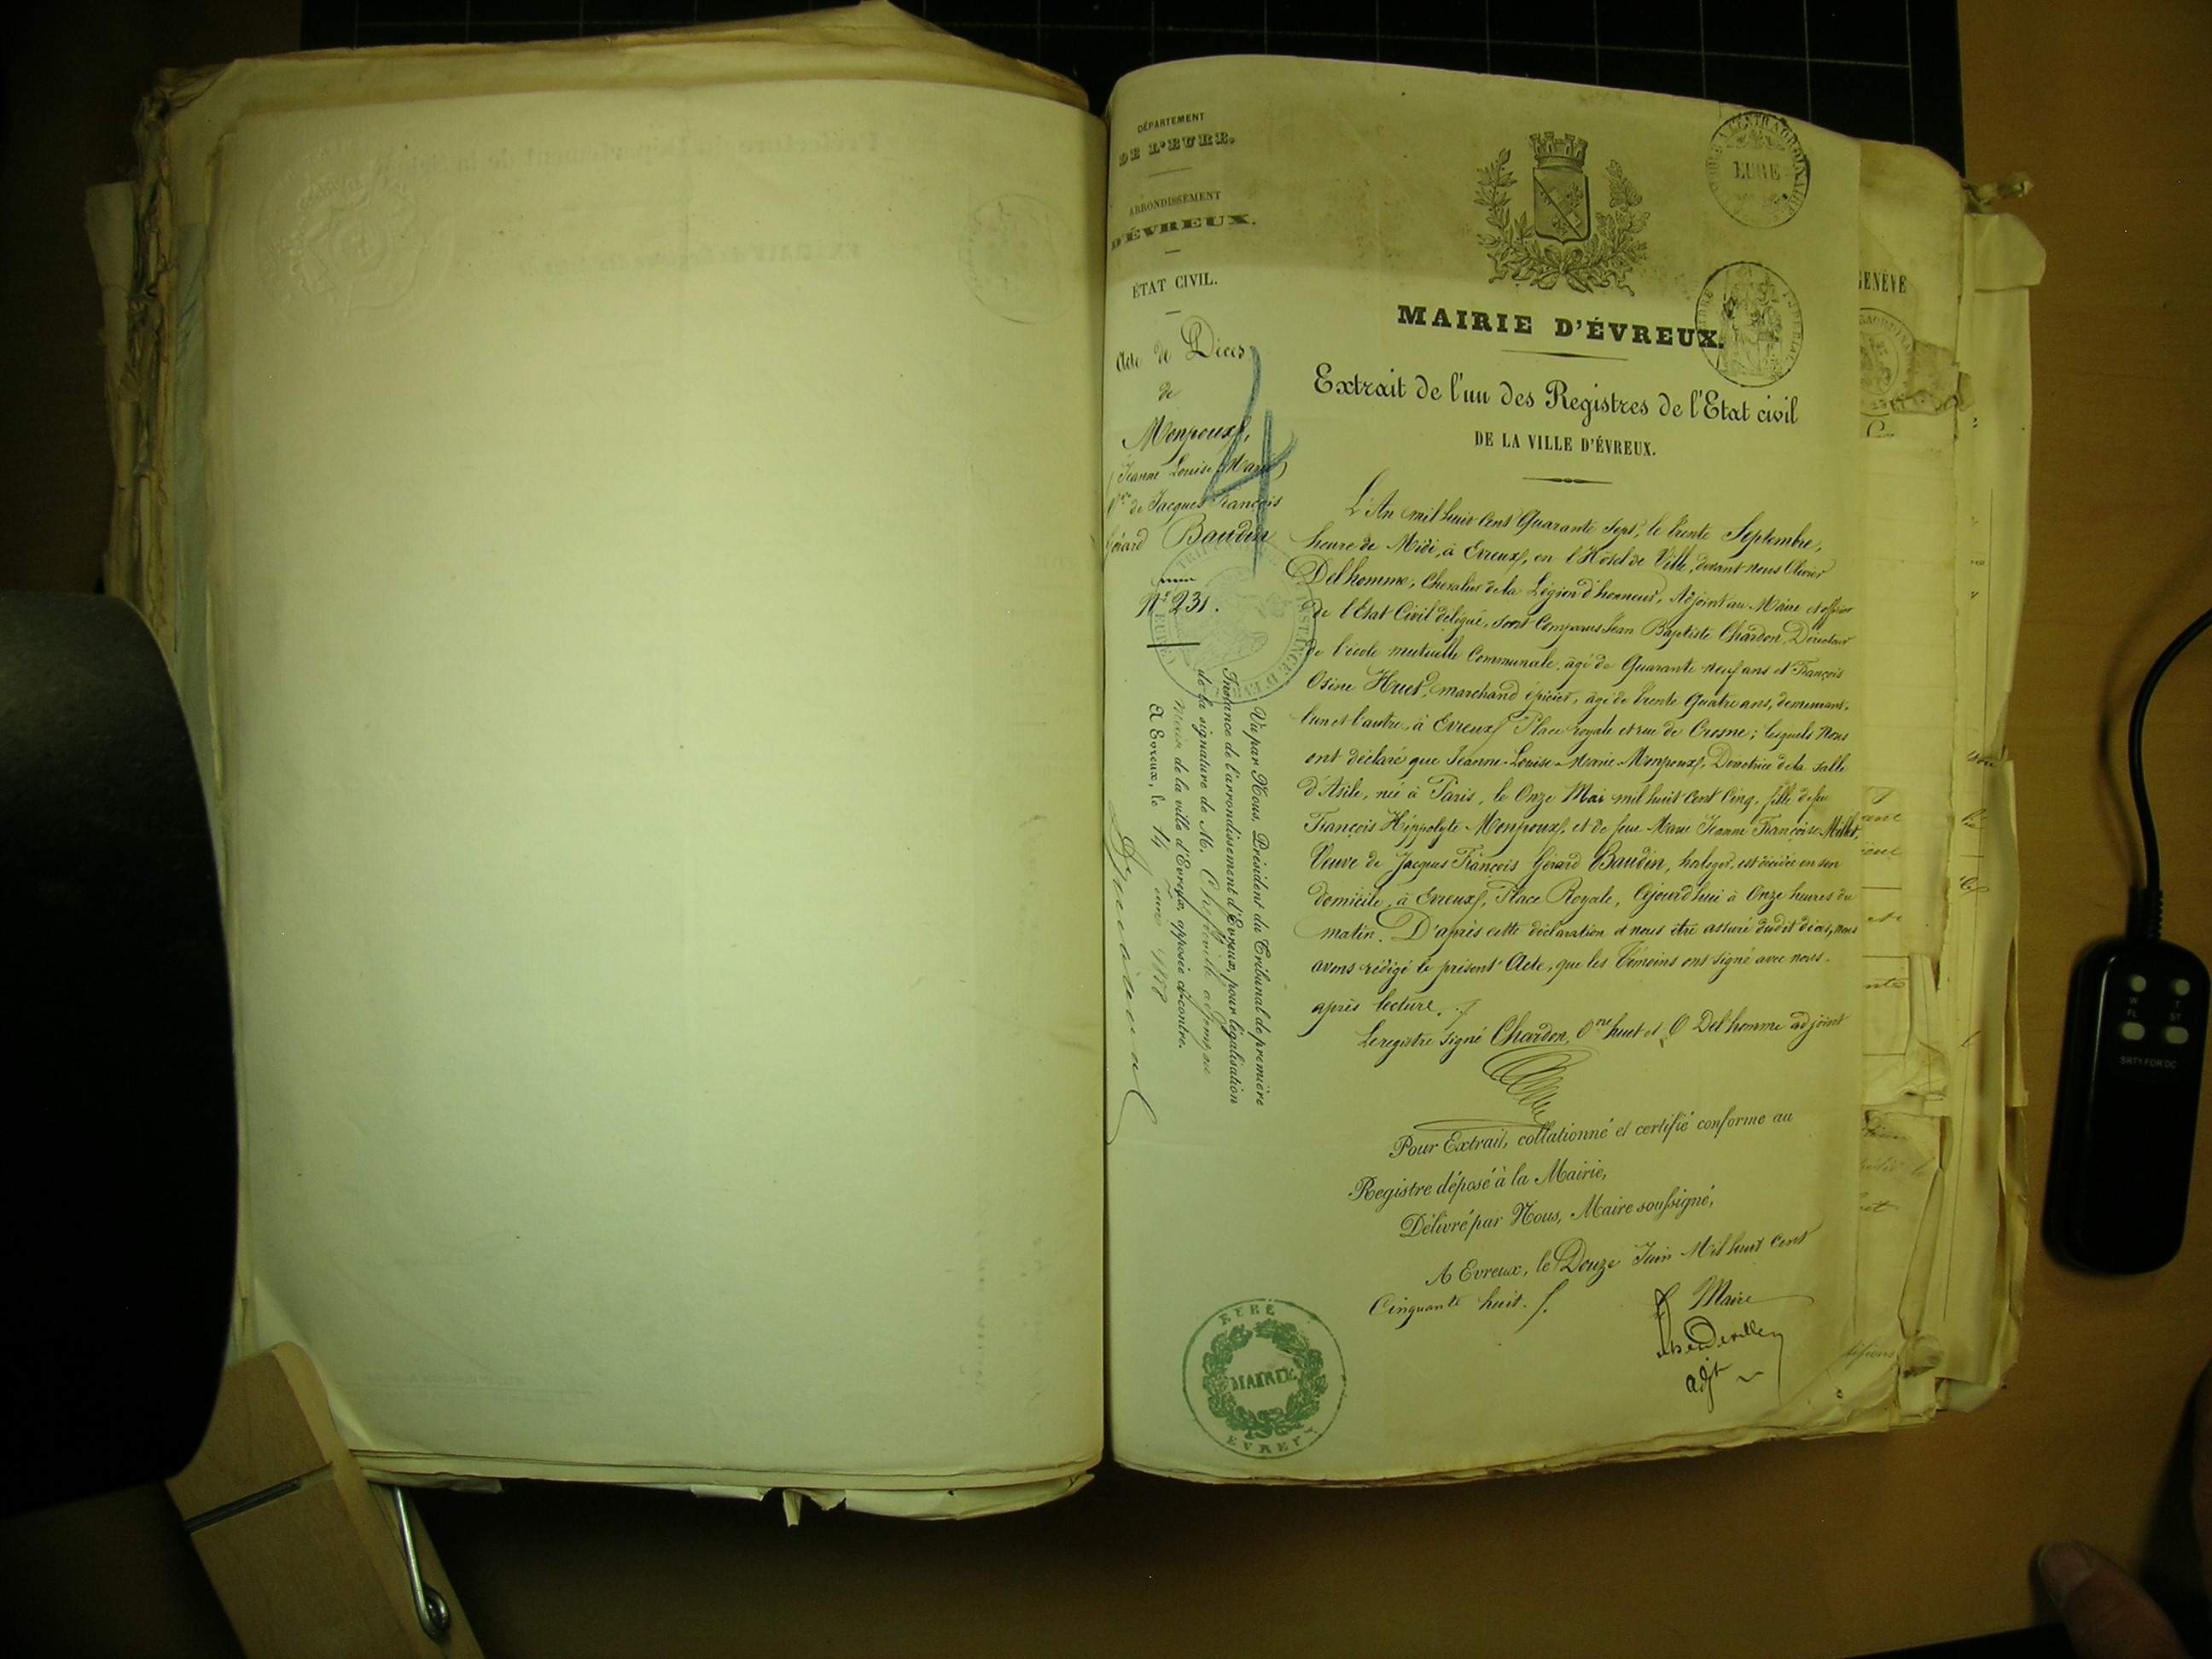 DÉPARTEMENT
DE L'EURE.
ARRONDISSEMENT
D'ÉVREUX.
ÉTAT CIVIL.
Acte de Décès
de
Monpoux,
(Jeanne Louise Marie)
Vve de Jacques François
Gérard Baudin
N° 231.
4
Vu par Nous, Président du Tribunal de première
Instance de l'arrondissement d'Evreux, pour légalisation
de la signature de M.
Maire de la ville d'Evreux, apposée ci-contre.
A Evreux, le 14 Juin 1858
EURE
MAIRIE D'ÉVREUX.
Extrait de l'un des Registres de l'Etat civil
DE LA VILLE D'ÉVREUX.
L'An mil huit Cent Quarante Sept, le trente Septembre,
heure de Midi, à Evreux, en l'Hotel de Ville, devant nous Olivier
Delhomme, Chevalier de la Légion d'honneur, Adjoint au Maire et officier
de l'Etat Civil délégué, sont Comparus Jean Baptiste Chardon, Directeur
de l'école mutuelle Communale, âgé de Quarante neuf ans et François
Osine Huet, marchand épicier, âgé de trente Quatre ans, demeurant,
l'un et l'autre, à Evreux, Place royale et rue de Crosne; lesquels Nous
ont déclaré que Jeanne-Louise-Marie-Monpoux, Directrice de la Salle
d'Asile, née à Paris, le Onze Mai mil huit Cent Cinq, fille de feu
François Hippolyte Monpoux, et de feue Marie Jeanne Françoise Millet,
Veuve de Jacques François Gérard Baudin, horloger, est décédée en son
domicile, à Evreux, Place Royale, Cejourd'hui à Onze heures du
matin. D'après cette déclaration et nous être assuré dudit décès, nous
avons rédigé le présent Acte, que les Témoins ont signé avec nous.
après lecture.
Le registre signé Chardon, One huet et O Delhomme adjoint
Pour Extrait, collationné et certifié conforme au
Registre déposé à la Mairie,
Délivré par Nous, Maire soussigné,
A Evreux, le Douze Juin Mil huit Cent
Cinquante huit.
Maire
adjt
EURE
MAIRIE
EVREUX
GENÈVE
W
FL
T
ST
SRT1 FOR DC